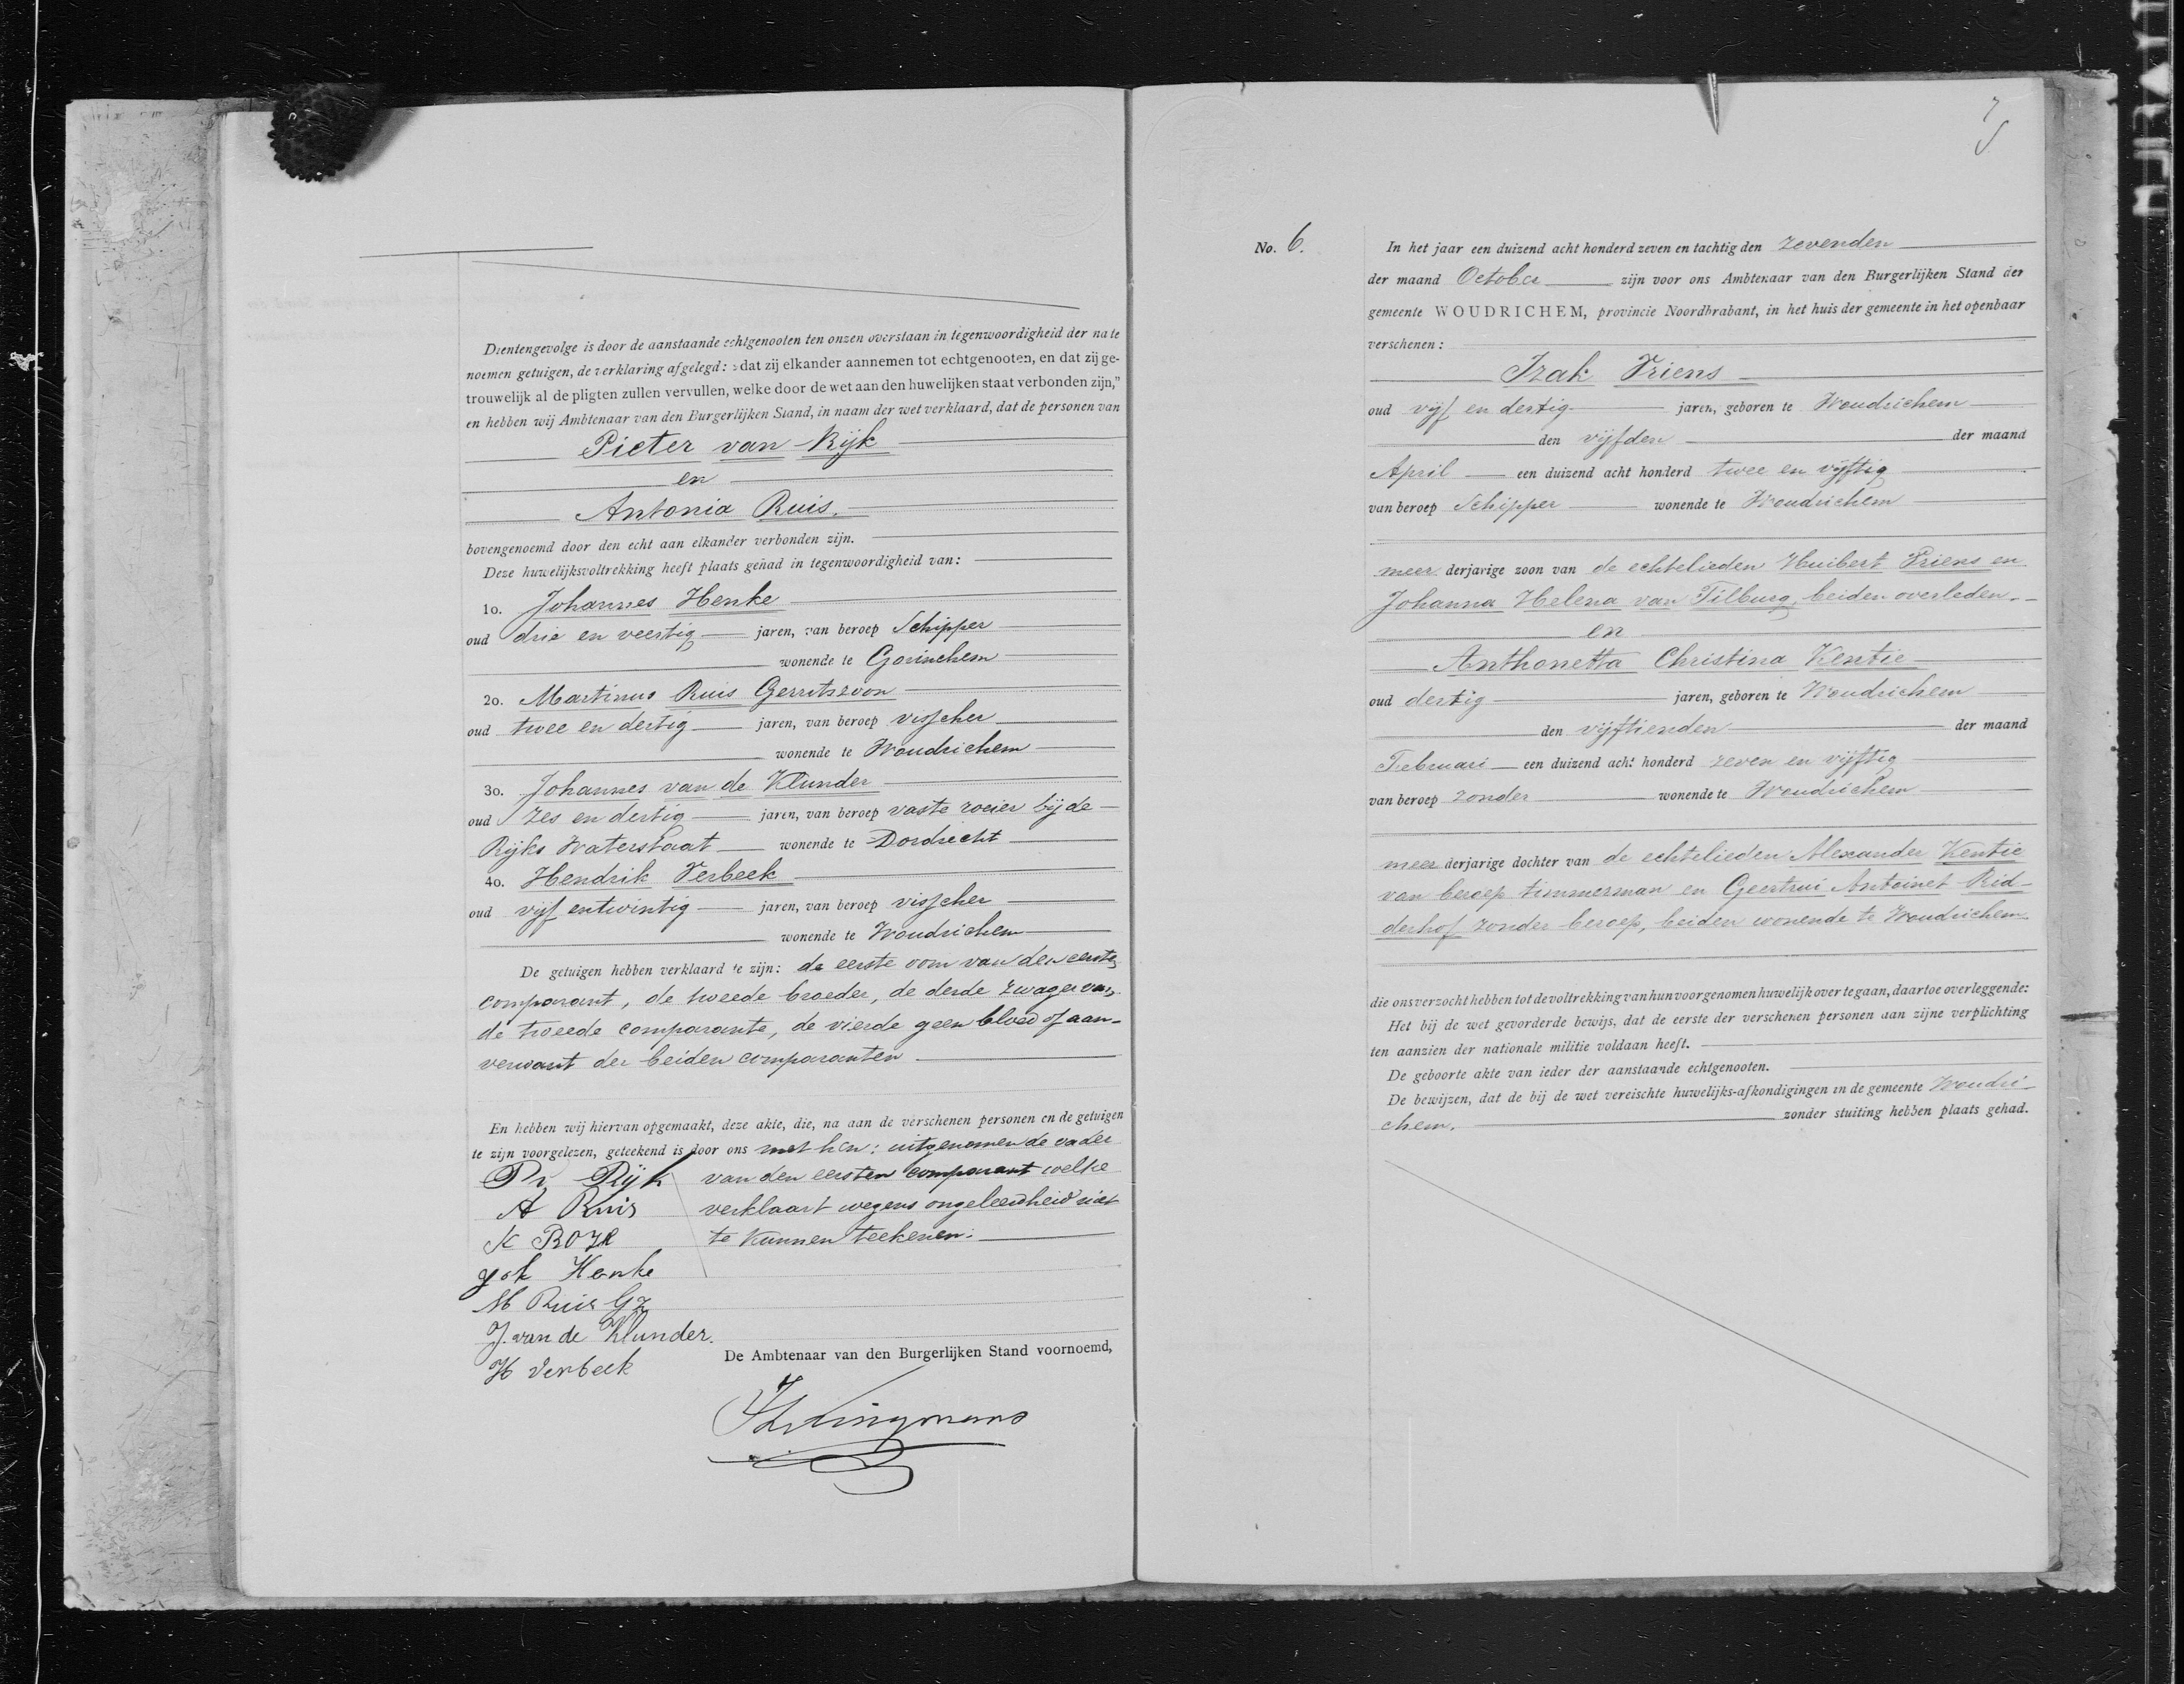 Dientengevolge is door de aanstaande echtgenooten ten onzen overstaan in tegenwoordigheid der na te
noemen getuigen, de verklaring afgelegd: „dat zij elkander aannemen tot echtgenooten, en dat zij ge-
trouwelijk al de pligten zullen vervullen, welke door de wet aan den huwelijken staat verbonden zijn,”
en hebben wij Ambtenaar van den Burgerlijken Stand, in naam der wet verklaard, dat de personen van
Pieter van Rijk
en
Antonia Ruis.
bovengenoemd door den echt aan elkander verbonden zijn.
Deze huwelijksvoltrekking heeft plaats gehad in tegenwoordigheid van:
1o. Johannes Henke
oud drie en veertig jaren, van beroep Schipper
wonende te Gorinchem
2o. Martinus Ruis Gerritszoon
oud twee en dertig jaren, van beroep visscher
wonende te Woudrichem
3o. Johannes van de Klunder
oud zes en dertig jaren, van beroep vaste roeier bij de
Rijks Waterstaat wonende te Dordrecht
4o. Hendrik Verbeek
oud vijf entwintig jaren, van beroep visscher
wonende te Woudrichem
De getuigen hebben verklaard te zijn: de eerste oom van den eerste
comparant, de tweede broeder, de derde zwager van
de tweede comparante, de vierde geen bloed of aan-
verwant der beiden comparanten
En hebben wij hiervan opgemaakt, deze akte, die, na aan de verschenen personen en de getuigen
te zijn voorgelezen, geteekend is door ons met hen: uitgenomen de vader
P v Rijk van den eersten comparant welke
A Ruis verklaart wegens ongeleerdheid niet
K ROZA te kunnen teekenen.
Joh Henke
M Ruis Gz
J. van de Klunder.
H Verbeek
De Ambtenaar van den Burgerlijken Stand voornoemd,
7
No. 6.
In het jaar een duizend acht honderd zeven en tachtig den zevenden
der maand October zijn voor ons Ambtenaar van den Burgerlijken Stand der
gemeente WOUDRICHEM, provincie Noordbrabant, in het huis der gemeente in het openbaar
verschenen:
Izak Friens
oud vijf en dertig jaren, geboren te Woudrichem
den vijfden der maand
April een duizend acht honderd twee en vijftig
van beroep Schipper wonende te Woudrichem
meerderjarige zoon van de echtelieden Huibert Friens en
Johanna Helena van Tilburg, beiden overleden.
en
Anthonetta Christina Kentie
oud dertig jaren, geboren te Woudrichem
den vijftienden der maand
Februari een duizend acht honderd zeven en vijftig
van beroep zonder wonende te Woudrichem
meerderjarige dochter van de echtelieden Alexander Kentie
van beroep timmerman en Geertrui Antoinet Rid-
derhof zonder beroep, beiden wonende te Woudrichem
die ons verzocht hebben tot de voltrekking van hun voorgenomen huwelijk over te gaan, daartoe overleggende:
Het bij de wet gevorderde bewijs, dat de eerste der verschenen personen aan zijne verplichting
ten aanzien der nationale militie voldaan heeft.
De geboorte akte van ieder der aanstaande echtgenooten.
De bewijzen, dat de bij de wet vereischte huwelijks-afkondigingen in de gemeente Woudri-
chem. zonder stuiting hebben plaats gehad.